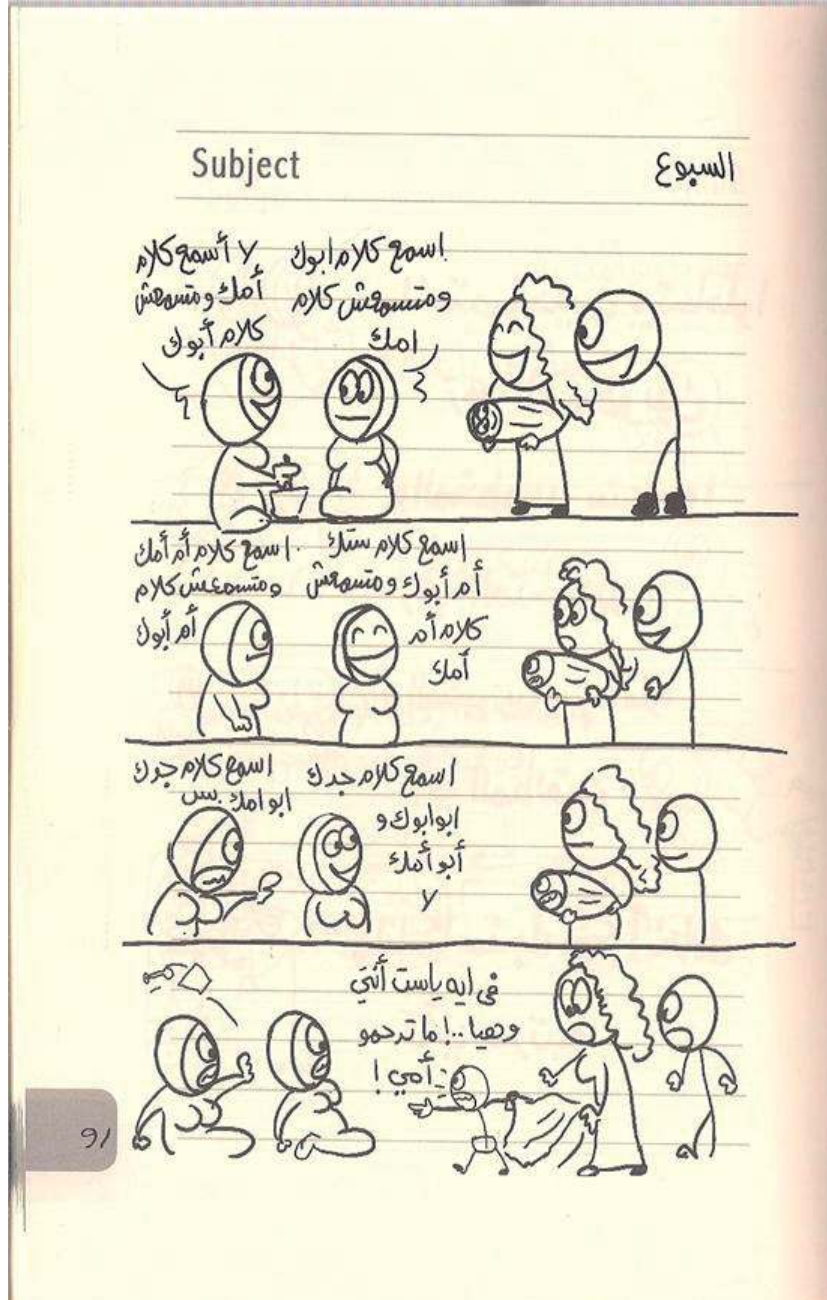 Subject
السبوع
اسمع كلام ابوك
ومتسمعش كلام
امك
لا أسمع كلام
أمك ومتسمعش
كلام أبوك
اسمع كلام ستك
أم أبوك ومتسمعش
كلام أم
أمك
اسمع كلام أم أمك
ومتسمعش كلام
أم أبوك
اسمع كلام جدك
ابو ابوك و
أبو أمك
لا
اسمع كلام جدك
ابو امك بس
في ايه ياست أنتي
وهيا..! ما ترحمو
أمي!
91